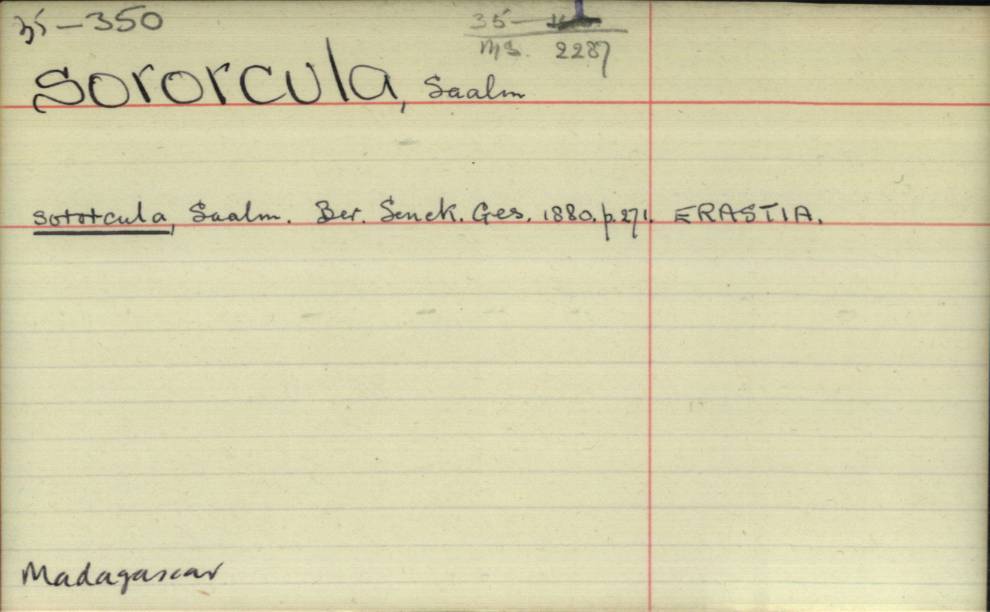 35-350
35-
MS. 2287
sororcula, Saalm
sororcula, Saalm. Ber. Senck. Ges. 1880. p. 271. ERASTIA.
Madagascar